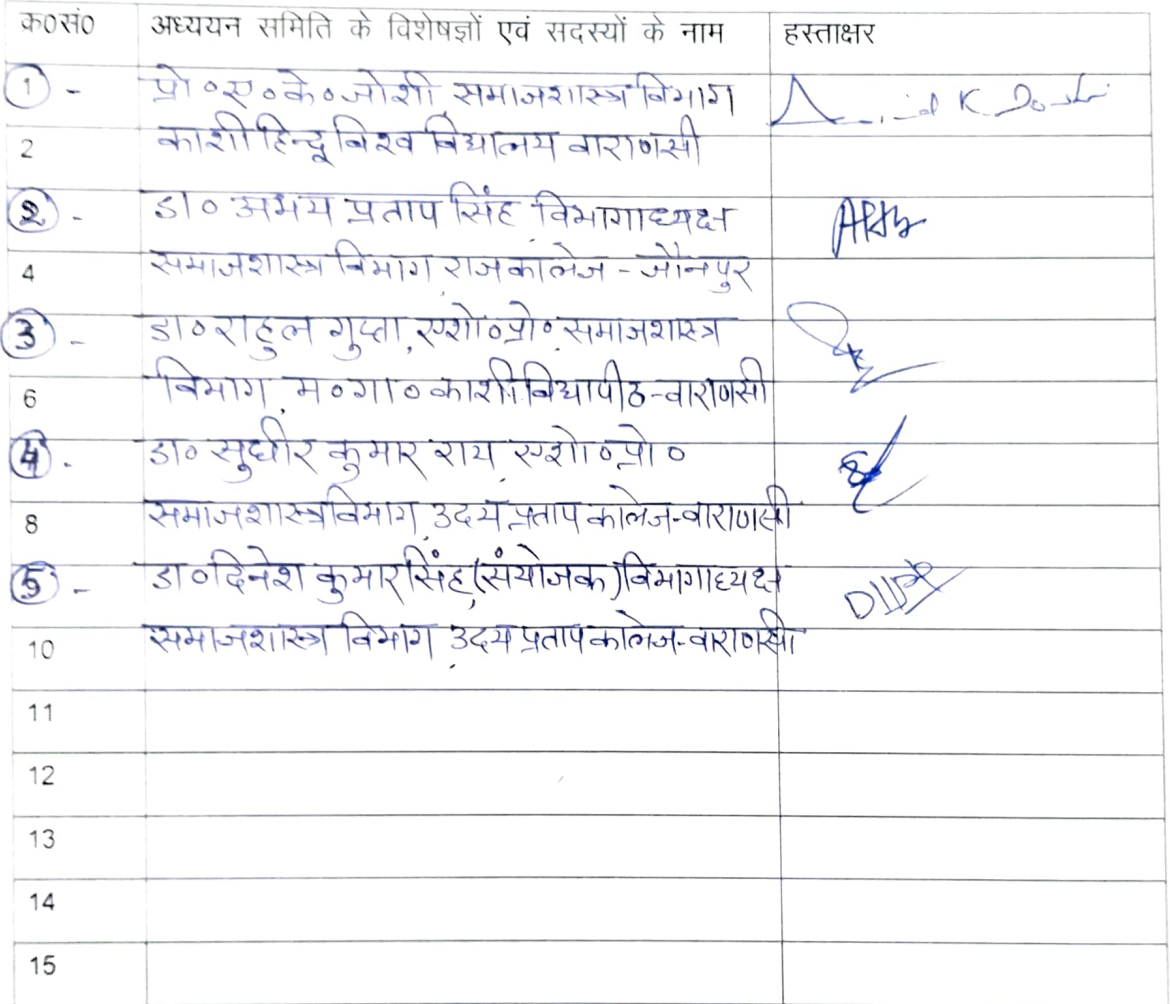 क0सं0 अध्ययन समिति के विशेषज्ञों एवं सदस्यों के नाम हस्ताक्षर
1 - प्रो०ए०के०जोशी, समाजशास्त्र विभाग
2 काशी हिन्दू विश्व विद्यालय वाराणसी
2 - डा० अभय प्रताप सिंह विभागाध्यक्ष
4 समाजशास्त्र विभाग राज कालेज - जौनपुर
3 - डा० राहुल गुप्ता, एशो०प्रो० समाजशास्त्र
6 विभाग, म०गा० काशी विद्यापीठ-वाराणसी
4 . डा० सुधीर कुमार राय, एशो०प्रो०
8 समाजशास्त्र विभाग, उदय प्रताप कालेज-वाराणसी
5 - डा० दिनेश कुमार सिंह, (संयोजक) विभागाध्यक्ष
10 समाजशास्त्र विभाग, उदय प्रताप कालेज-वाराणसी
11
12
13
14
15